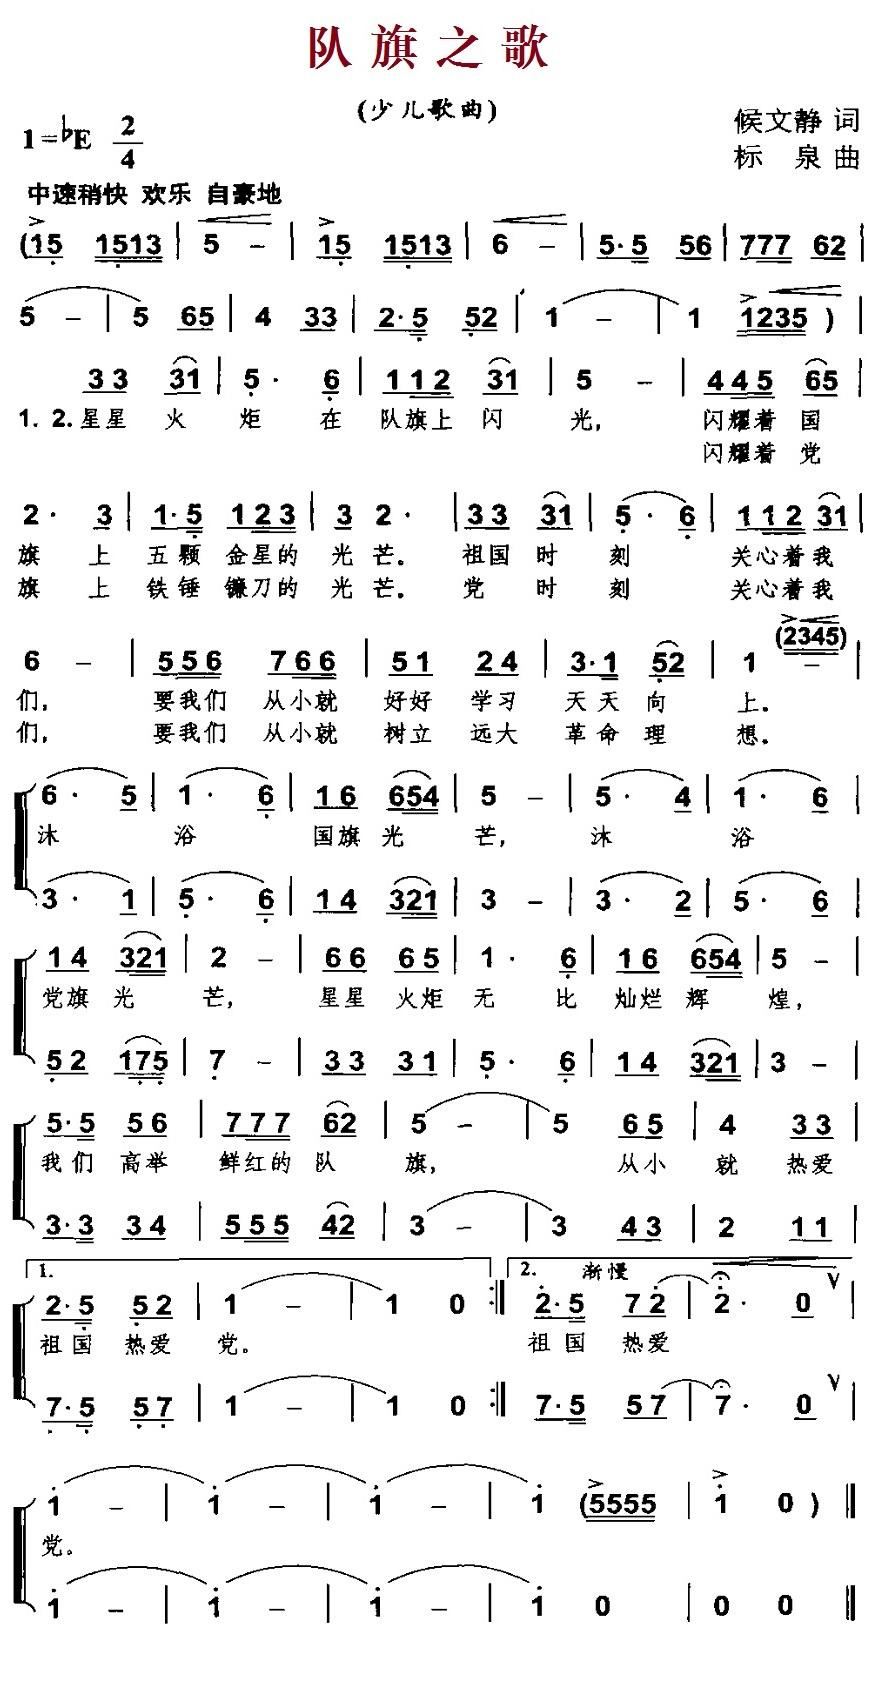 队旗之歌
(少儿歌曲)
1=♭E 2/4
候文静 词
标 泉 曲
中速稍快 欢乐 自豪地
(15 1513 | 5 – | 15 1513 | 6 – | 5·5 56 | 777 62 |
5 – | 5 65 | 4 33 | 2·5 52 | 1 – | 1 1235 ) |
33 31 | 5· 6 | 112 31 | 5 – | 445 65 |
1. 2. 星星 火 炬 在 队旗上 闪 光, 闪耀着 国
闪耀着 党
2· 3 | 1·5 123 | 3 2· | 33 31 | 5· 6 | 112 31 |
旗 上 五颗 金星的 光 芒。 祖国 时 刻 关心着 我
旗 上 铁锤 镰刀的 光 芒。 党 时 刻 关心着 我
(2345)
6 – | 556 766 | 51 24 | 3·1 52 | 1 – |
们, 要我们 从小就 好好 学习 天天 向 上。
们, 要我们 从小就 树立 远大 革命 理 想。
6· 5 | 1· 6 | 16 654 | 5 – | 5· 4 | 1· 6 |
沐 浴 国旗 光 芒, 沐 浴
3· 1 | 5· 6 | 14 321 | 3 – | 3· 2 | 5· 6 |
14 321 | 2 – | 66 65 | 1· 6 | 16 654 | 5 – |
党旗 光 芒, 星星 火炬 无 比 灿烂 辉 煌,
52 175 | 7 – | 33 31 | 5· 6 | 14 321 | 3 – |
5·5 56 | 777 62 | 5 – | 5 65 | 4 33 |
我们 高举 鲜红的 队 旗, 从小 就 热爱
3·3 34 | 555 42 | 3 – | 3 43 | 2 11 |
1. 2. 渐慢
2·5 52 | 1 – | 1 0 :‖ 2·5 72 | 2· 0 |
祖国 热爱 党。 祖国 热爱
7·5 57 | 1 – | 1 0 :‖ 7·5 57 | 7· 0 |
1 – | 1 – | 1 – | 1 (5555 | 1 0 ) ‖
党。
1 – | 1 – | 1 – | 1 0 | 0 0 ‖